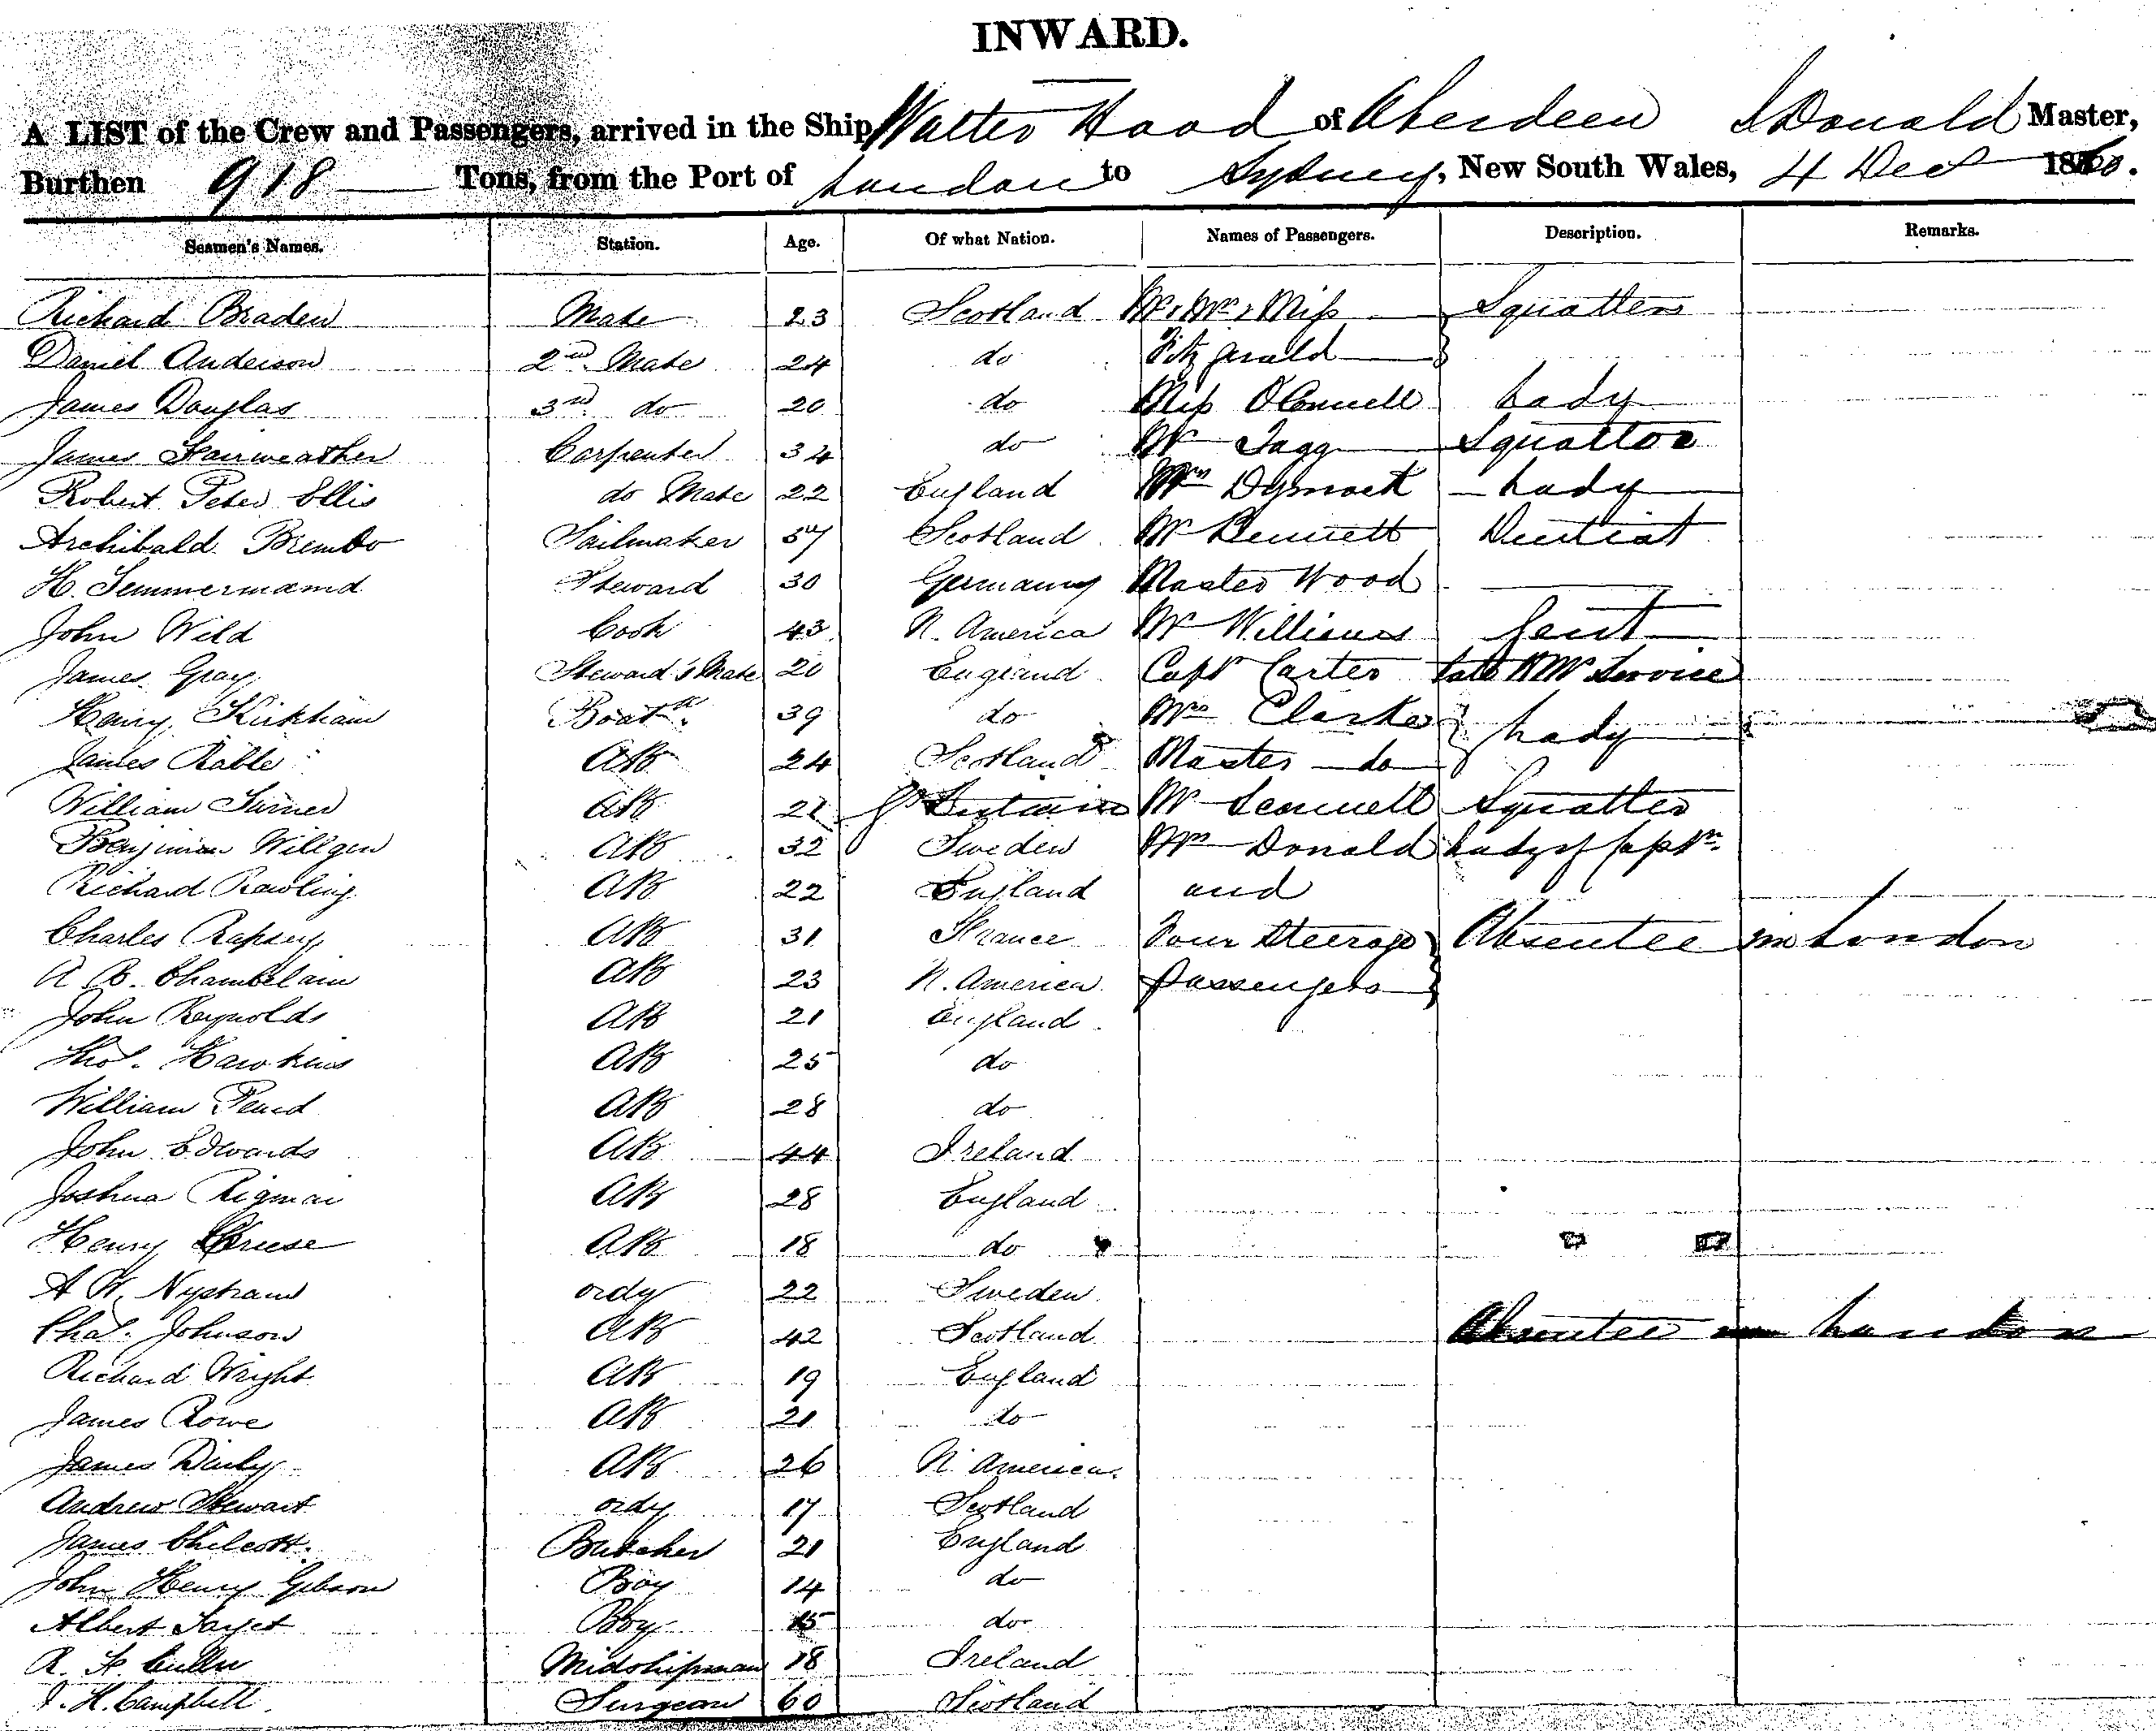 INWARD.
A LIST of the Crew and Passengers, arrived in the Ship Walter Hood of Aberdeen J Donald Master,
Burthen 918 Tons, from the Port of London to Sydney, New South Wales, 4 Dec 1860.
Seamen's Names. Station. Age. Of what Nation. Names of Passengers. Description. Remarks.
Richard Braden Mate 23 Scotland Mr, Mrs, Miss Squatters
Daniel Anderson 2nd Mate 24 do Fitzgerald
James Douglas 3rd do 20 do Miss O'Connell Lady
James Fairweather Carpenter 34 do Mr Tagg Squatter
Robert Peter Ellis do Mate 22 England Mrs Dymock Lady
Archibald Brembo Sailmaker 57 Scotland Mr Bennett Dentist
H. Semmermamd Steward 30 Germany Master Wood
John Wild Cook 43 N. America Mr Williams Gent
James Gray Steward's Mate 20 England Capt Carter late HM Service
Henry Kirkham Boatn 39 do Mrs Clarke Lady
James Rable AB 24 Scotland Master do
William Turner AB 21 Gt Britain Mr Scammell Squatter
Benjiman Willgen AB 32 Sweden Mrs Donald Lady of Captn.
Richard Rawling AB 22 England and
Charles Rapsey AB 31 France Four Steerage Absentee in London
A B. Chambelain AB 23 N. America passengers
John Reynolds AB 21 England
Thos. Hawkins AB 25 do
William Peard AB 28 do
John Edwards AB 44 Ireland
Joshua Rigmai AB 28 England
Henry Kruse AB 18 do
A W. Nystram ordy 22 Sweden
Chas. Johnson AB 42 Scotland Absentee in London
Richard Wright AB 19 England
James Rowe AB 21 do
James Daily AB 26 N. America
Andrew Stewart ordy 17 Scotland
James Chilcott. Butcher 21 England
John Henry Gibson Boy 14 do
Albert Sayet Boy 15 do
R. H. Cullen Midshipman 18 Ireland
J. H. Campbell. Surgeon 60 Scotland